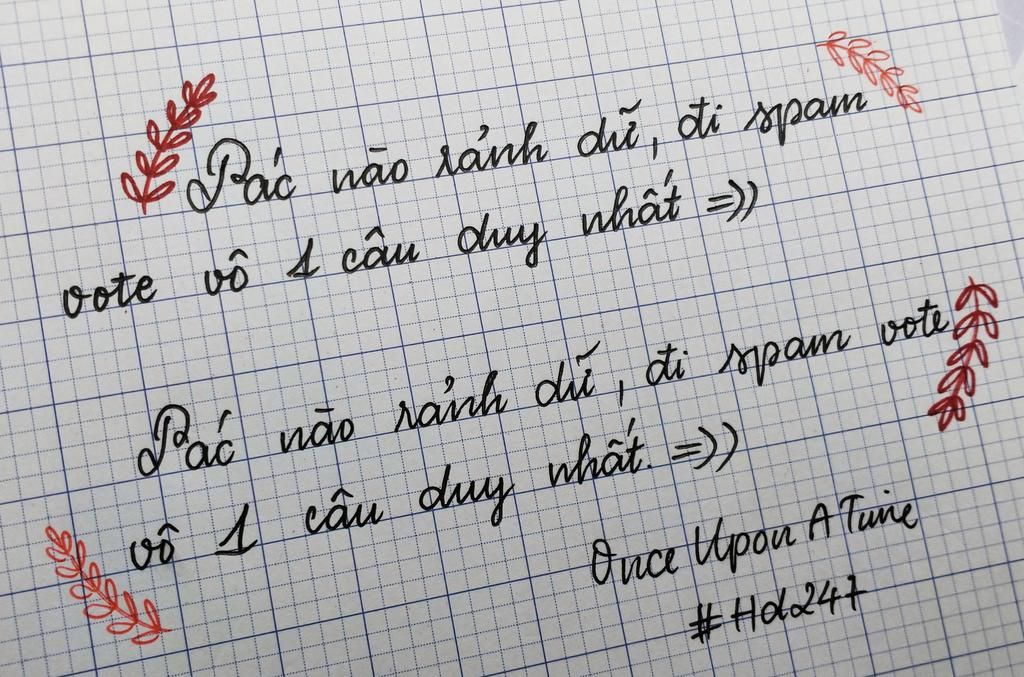 Pác nào rảnh dữ, đi spam
vote vô 1 câu duy nhất =))
Pác nào rảnh dữ, đi spam vote
vô 1 câu duy nhất. =))
Once Upon A Time
#Hd247